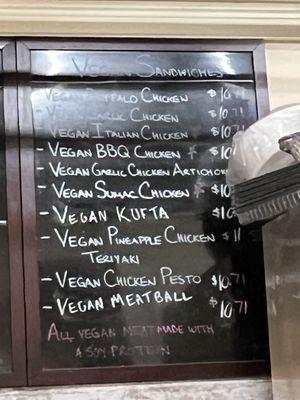 Vegan Sandwiches
Vegan Buffalo Chicken $10.71
- Vegan Garlic Chicken $10.71
- Vegan Italian Chicken $10.71
- Vegan BBQ Chicken * $10.71
- Vegan Garlic Chicken Artichoke
- Vegan Sumac Chicken * $10
- Vegan Kufta $10
- Vegan Pineapple Chicken $11
Teriyaki
- Vegan Chicken Pesto $10.71
- Vegan Meatball $10.71
All vegan meat made with
a soy protein